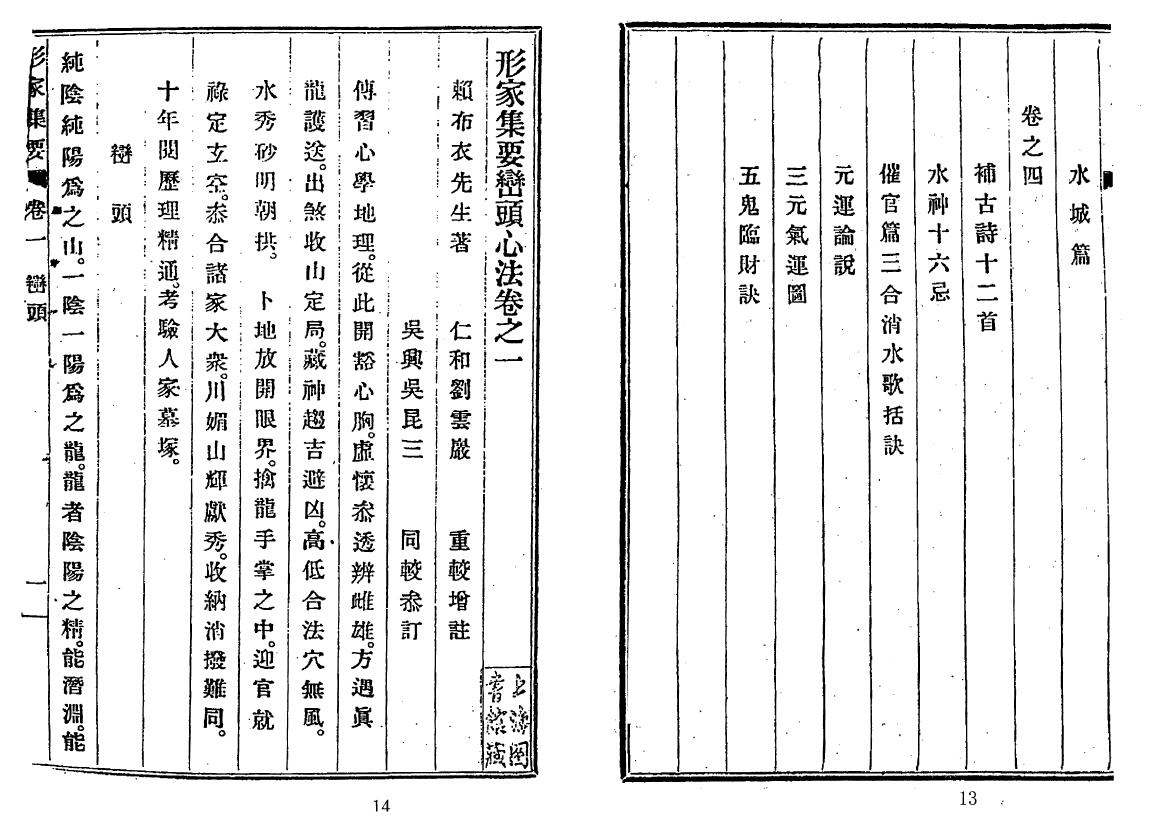 水城篇
卷之四
補古詩十二首
水神十六忌
催官篇三合消水歌括訣
元運論說
三元氣運圖
五鬼臨財訣
13
形家集要巒頭心法卷之一
上海圖書館藏
賴布衣先生著 仁和劉雲巖 重較增註
吳興吳昆三 同較叅訂
傳習心學地理。從此開豁心胸。虛懷叅透辨雌雄。方遇眞
龍護送。出煞收山定局。藏神趨吉避凶。高低合法穴無風。
水秀砂明朝拱。 卜地放開眼界。擒龍手掌之中。迎官就
祿定玄空。叅合諸家大衆。川媚山輝獻秀。收納消撥難同。
十年閱歷理精通。考驗人家墓塚。
巒頭
純陰純陽爲之山。一陰一陽爲之龍。龍者陰陽之精。能潛淵。能
形家集要 卷一 巒頭 一
14